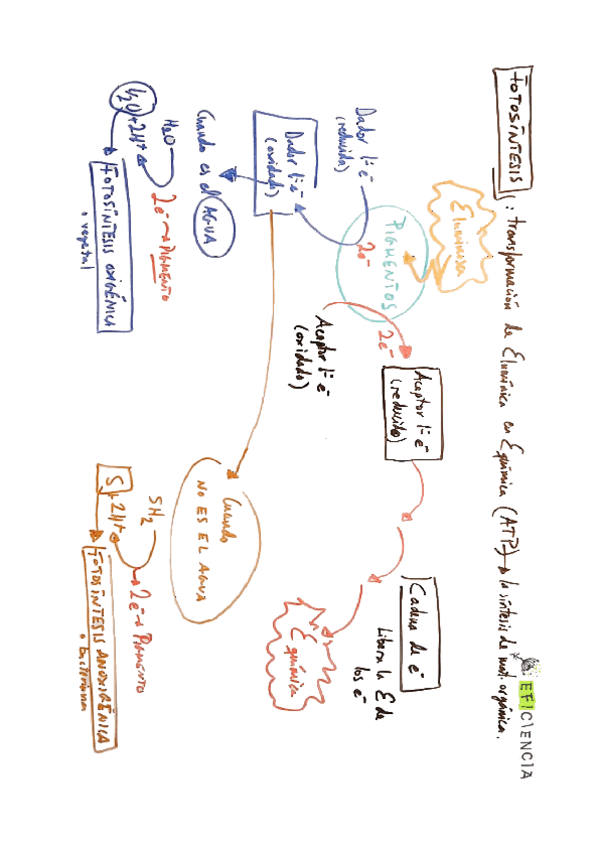 EFICIENCIA
FOTOSÍNTESIS : transformación de E lumínica en E química (ATP) → la síntesis de mat. orgánica.
E luminosa
PIGMENTOS
2e⁻
2e⁻
Dador 1º e⁻
(reducido)
Dador 1º e⁻
(oxidado)
Aceptor 1º e⁻
(oxidado)
Aceptor 1º e⁻
(reducido)
Cadena de e⁻
Libera la E de
los e⁻
E química
Cuando es el AGUA
H₂O
2e⁻ → PIGMENTO
½O₂ + 2H⁺
FOTOSÍNTESIS OXIGÉNICA
• vegetal
Cuando
NO ES EL AGUA
SH₂
2e⁻ → PIGMENTO
S + 2H⁺
FOTOSÍNTESIS ANOXIGÉNICA
• bacteriana